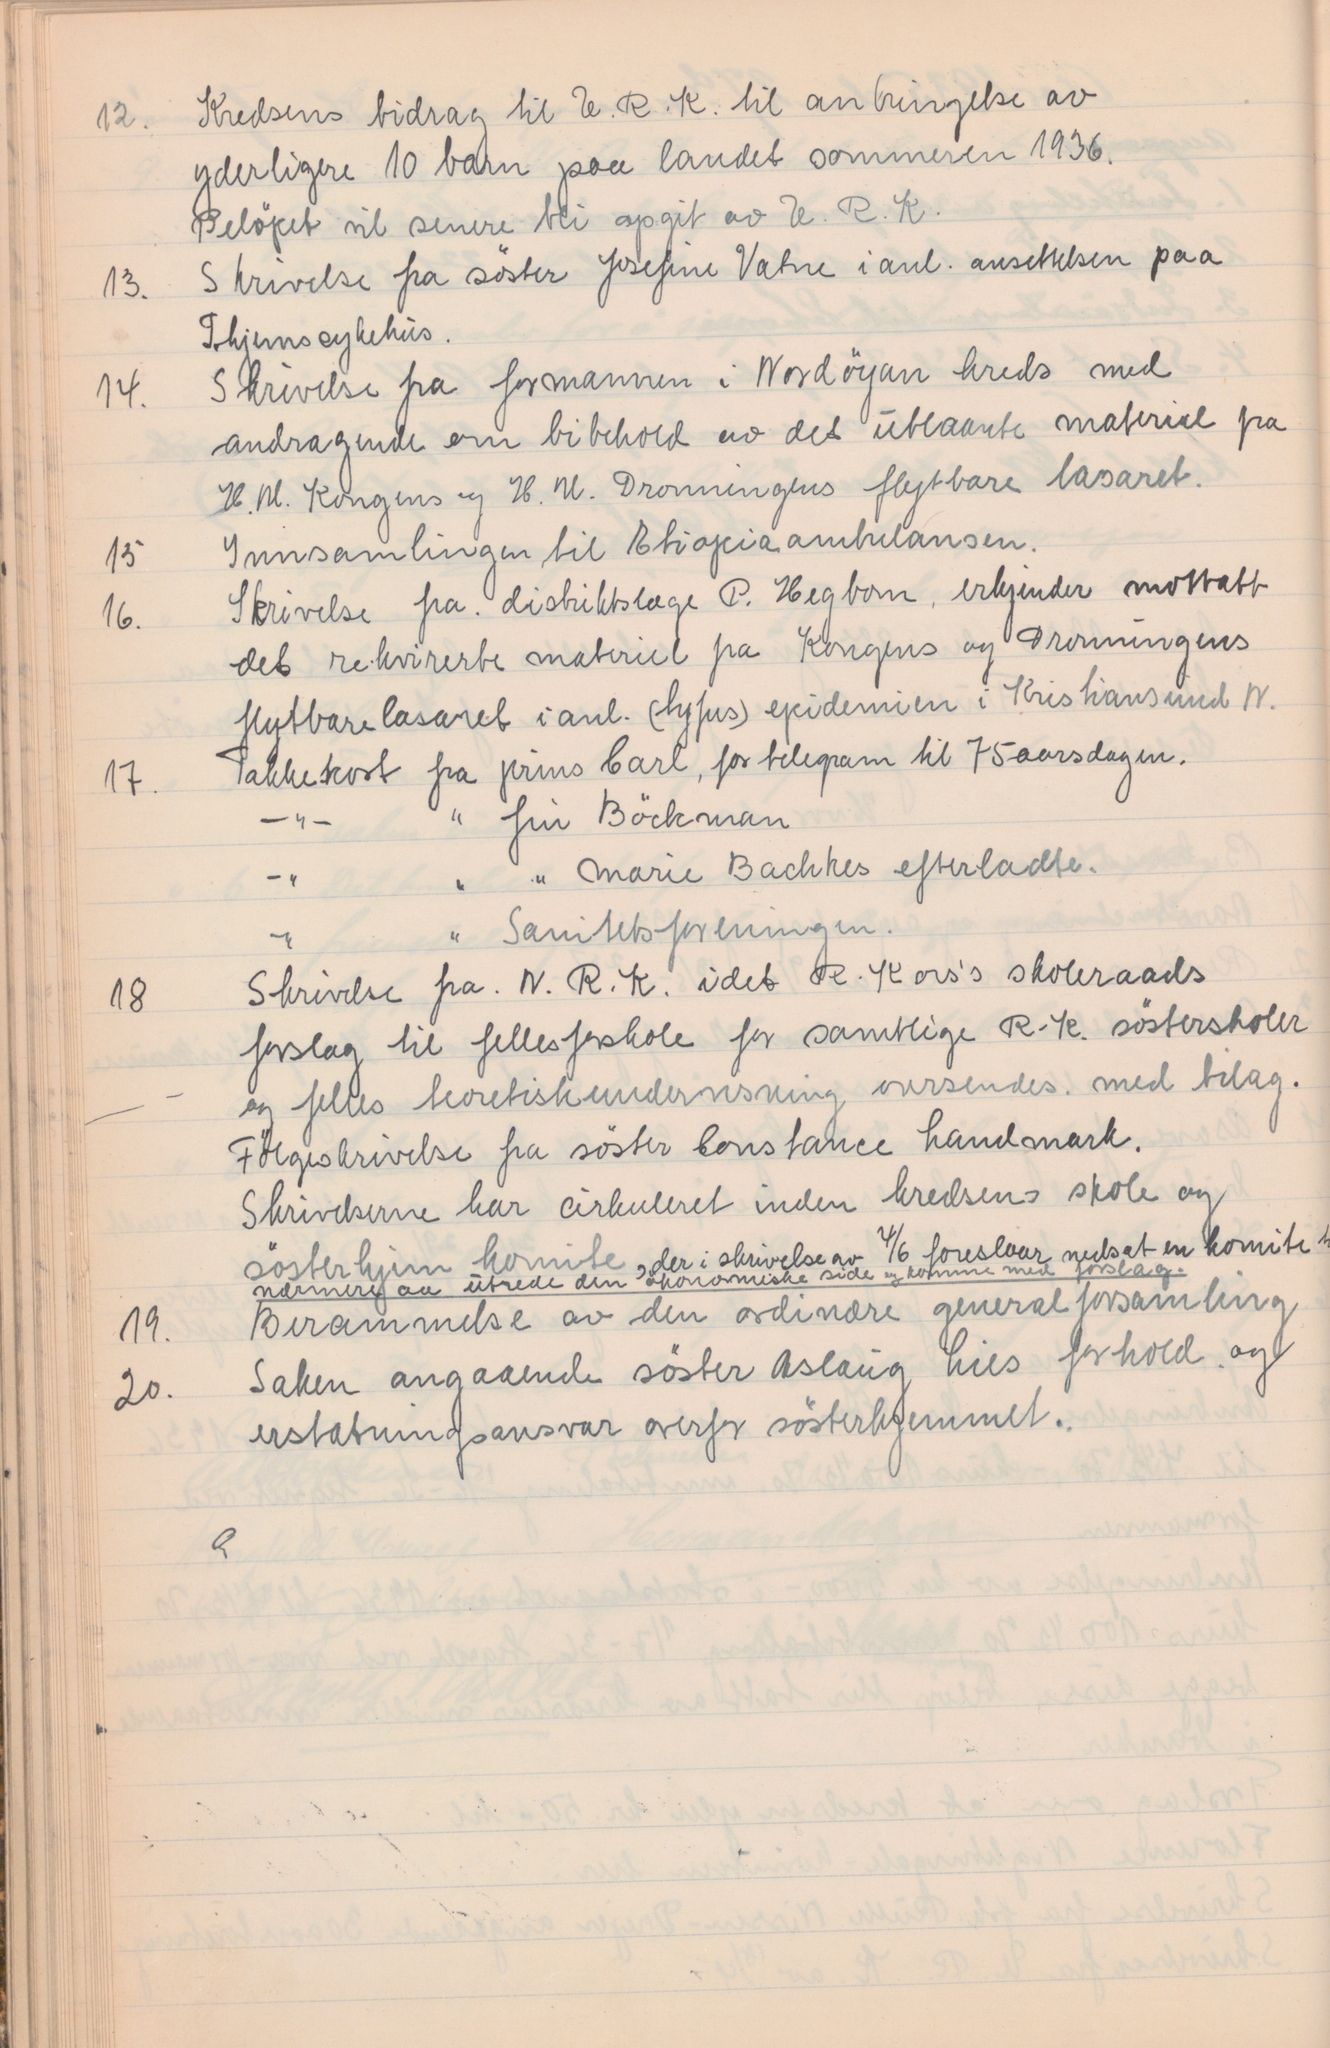 12. Kredsens bidrag til U. R. K. til anbringelse av
yderligere 10 barn paa landet sommeren 1936.
Beløpet vil senere bli opgit av U. R. K.
13. Skrivelse fra söster Josefine Vatne i anl. ansettelsen paa
T.hjems sykehus.
14. Skrivelse fra formannen i Nordöyan kreds med
andragende om bibehold av det utlaante materiel fra
H. M. Kongens og H. M. Dronningens flytbare lasaret.
15 Innsamlingen til Etiopiaambulansen.
16. Skrivelse fra. distriktslæge P. Hegbom, erkjender mottatt
det rekvirerte materiel fra Kongens og Dronningens
flytbare lasaret i anl. (tyfus) epidemien i Kristiansund N.
17. Takkekort fra prins Carl, for telegram til 75 aarsdagen.
-"- " fru Böckman
-" " " Marie Bachkes efterladte.
-" " Sanitetsforeningen.
18 Skrivelse fra. N. R. K. idet R. Kors's skoleraads
forslag til fellesforskole for samtlige R. K. søsterskoler
og felles teoretiskundervisning oversendes. med bilag.
Fölgeskrivelse fra söster Constance Landmark.
Skrivelserne har cirkuleret inden kredsens skole og
sösterhjem komite, der i skrivelse av 4/6 foreslaar nedsat en komite t
nærmere aa utrede den økonomiske side og komme med forslag.
19. Berammelse av den ordinære generalforsamling
20. Saken angaaende söster Aslaug Lies forhold og
erstatningsansvar overfor sösterhjemmet.